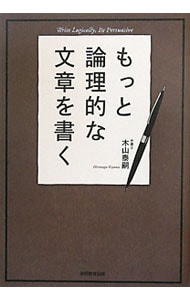 Write Logically, Be Persuasive
もっと
論理的な
文章を書く
弁護士
木山泰嗣
Hirotsugu Kiyama
実務教育出版